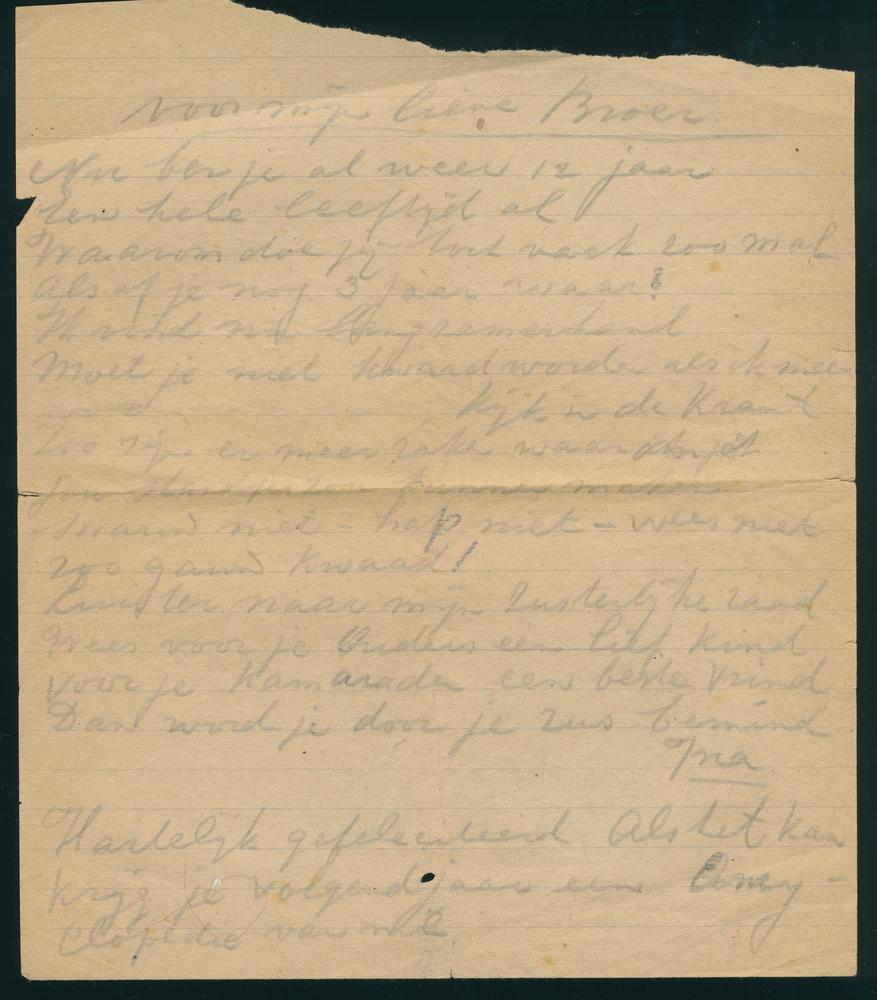 voor mijn lieve Broer
Nu ben je al weer 12 jaar
Een hele leeftijd al
Waarom doe jij toch vaak zoo mal
Alsof je nog 3 jaar waar!
Ik vind nu
Moet je niet kwaad worden als ik mee
kijk in de Krant
Zoo zijn er meer zaken waar
jou kunnen maken
niet - hap niet - wees niet
zoo gauw kwaad!
Luister naar mijn zusterlijke raad
Wees voor je Ouders een lief kind
Voor je Kamaraden een beste vrind
Dan word je door je zus bemind
Ina
Hartelijk gefeliciteerd Als het kan
krijg je volgend jaar een Ency-
clopedie van me